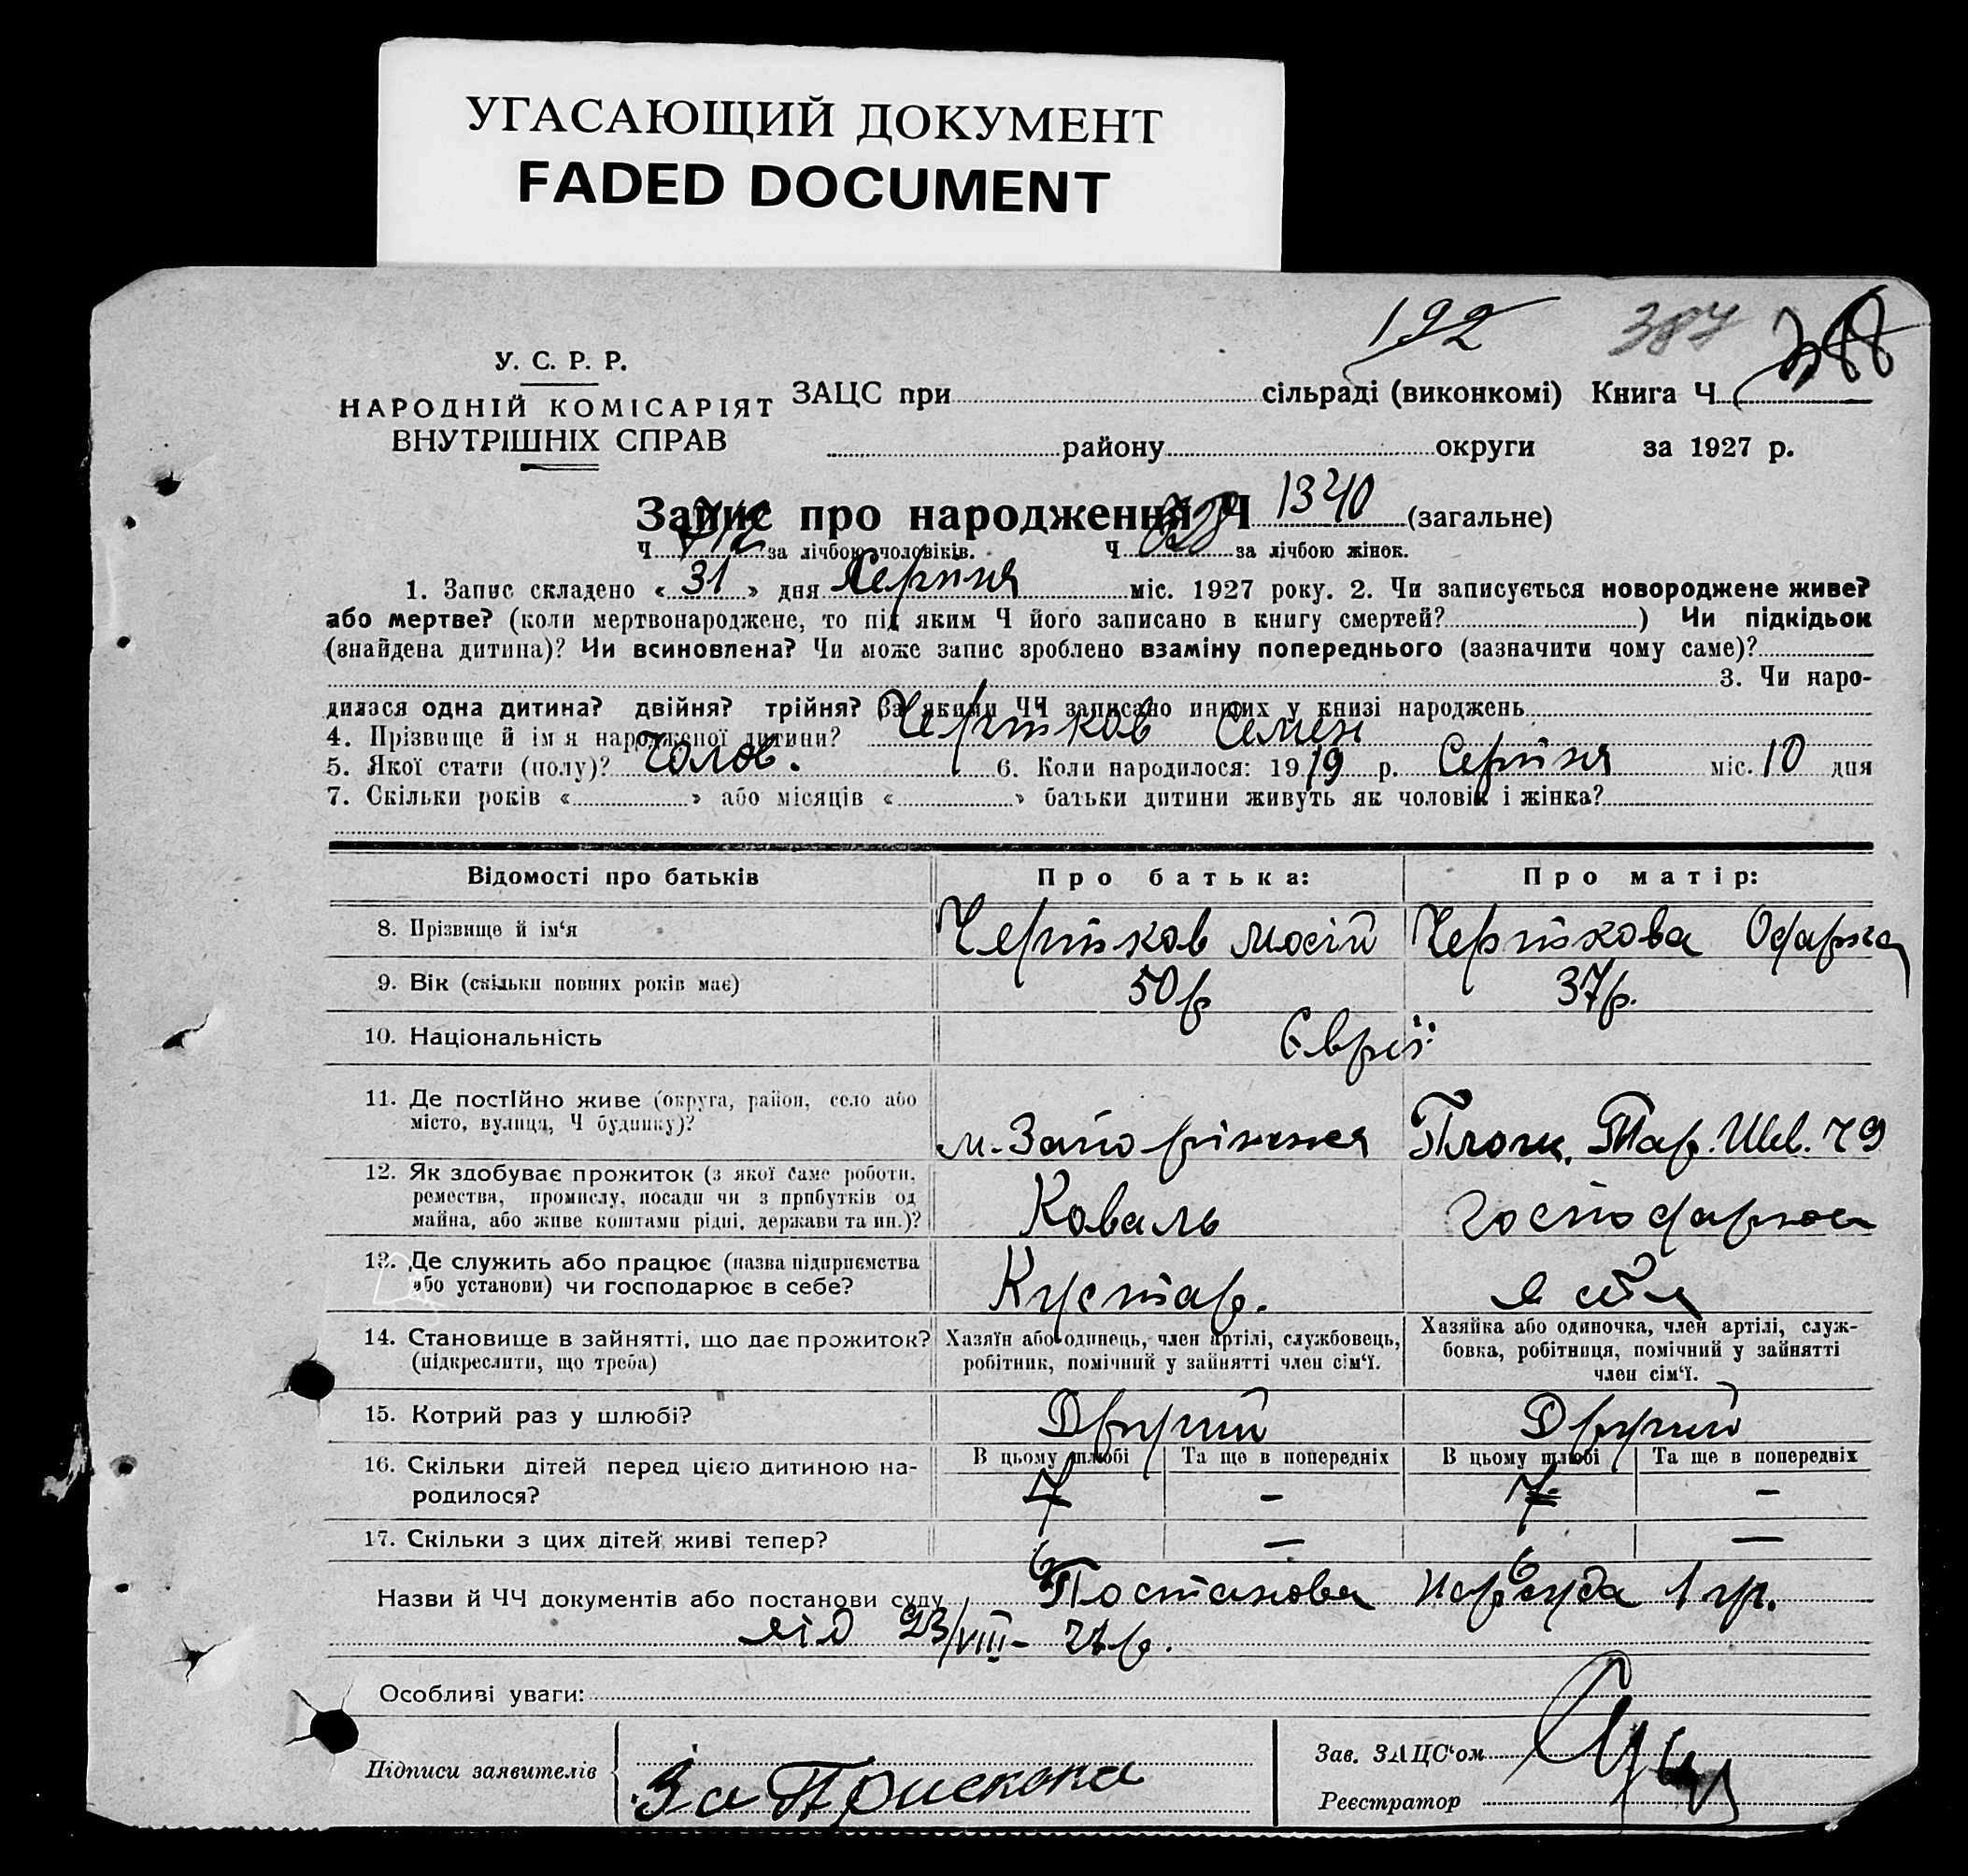 УГАСАЮЩИЙ ДОКУМЕНТ
FADED DOCUMENT
192 387
У. С. Р. Р.
НАРОДНІЙ КОМІСАРІЯТ
ВНУТРІШНІХ СПРАВ
ЗАЦС при сільраді (виконкомі) Книга Ч
району округи за 1927 р.
Запис про народження Ч 1340 (загальне)
Ч 712 за лічбою чоловіків. Ч 628 за лічбою жінок.
1. Запис складено «31» дня Серпня міс. 1927 року. 2. Чи записується новороджене живе?
або мертве? (коли мертвонароджене, то під яким Ч його записано в книгу смертей? ) Чи підкідьок
(знайдена дитина)? Чи всиновлена? Чи може запис зроблено взаміну попереднього (зазначити чому саме)?
3. Чи наро-
дилася одна дитина? двійня? трійня? За якими ЧЧ записано инших у книзі народжень
4. Прізвище й ім я народженої дитини? Чертков Семен
5. Якої стати (полу)? Чолов. 6. Коли народилося: 1919 р. Серпня міс. 10 дня
7. Скільки років « » або місяців « » батьки дитини живуть як чоловік і жінка?
Відомості про батьків Про батька: Про матір:
8. Прізвище й ім‘я Чертков Мосій Черткова
9. Вік (скільки повних років має) 50 р 37 р.
10. Національність Євреї
11. Де постійно живе (округа, район, село або
місто, вулиця, Ч будинку)? м. Запоріжжя Площ. Тар. Шев. 79
12. Як здобуває прожиток (з якої саме роботи,
ремества, промислу, посади чи з прибутків од
майна, або живе коштами рідні, держави та ин.)? Коваль господарює
13. Де служить або працює (назва підприємства
або установи) чи господарює в себе? Кустар.
14. Становище в зайнятті, що дає прожиток?
(підкреслити, що треба)
Хазяїн або одинець, член артілі, службовець,
робітник, помічний у зайнятті член сім‘ї.
Хазяйка або одиночка, член артілі, служ-
бовка, робітниця, помічний у зайнятті
член сім‘ї.
15. Котрий раз у шлюбі? Другий Другий
16. Скільки дітей перед цією дитиною на-
родилося?
В цьому шлюбі Та ще в попередніх В цьому шлюбі Та ще в попередніх
7 – 7 –
17. Скільки з цих дітей живі тепер? 6 — 6 —
Назви й ЧЧ документів або постанови суду Постанова Нарсуда 1 гр.
від 23/VIII- 27 р.
Особливі уваги:
Підписи заявителів За
Зав. ЗАЦС‘ом
Реєстратор